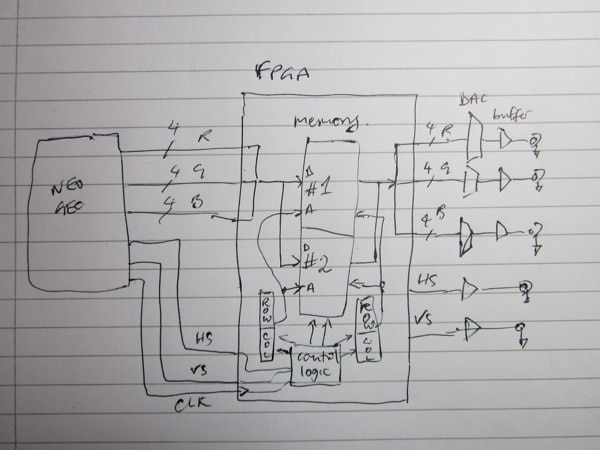 FPGA
memory
DAC
buffer
NEO
GEO
4 R
4 G
4 B
D
#1
A
D
#2
A
4 R
4 G
4 B
HS
VS
ROW
COL
ROW
COL
control
logic
HS
VS
CLK